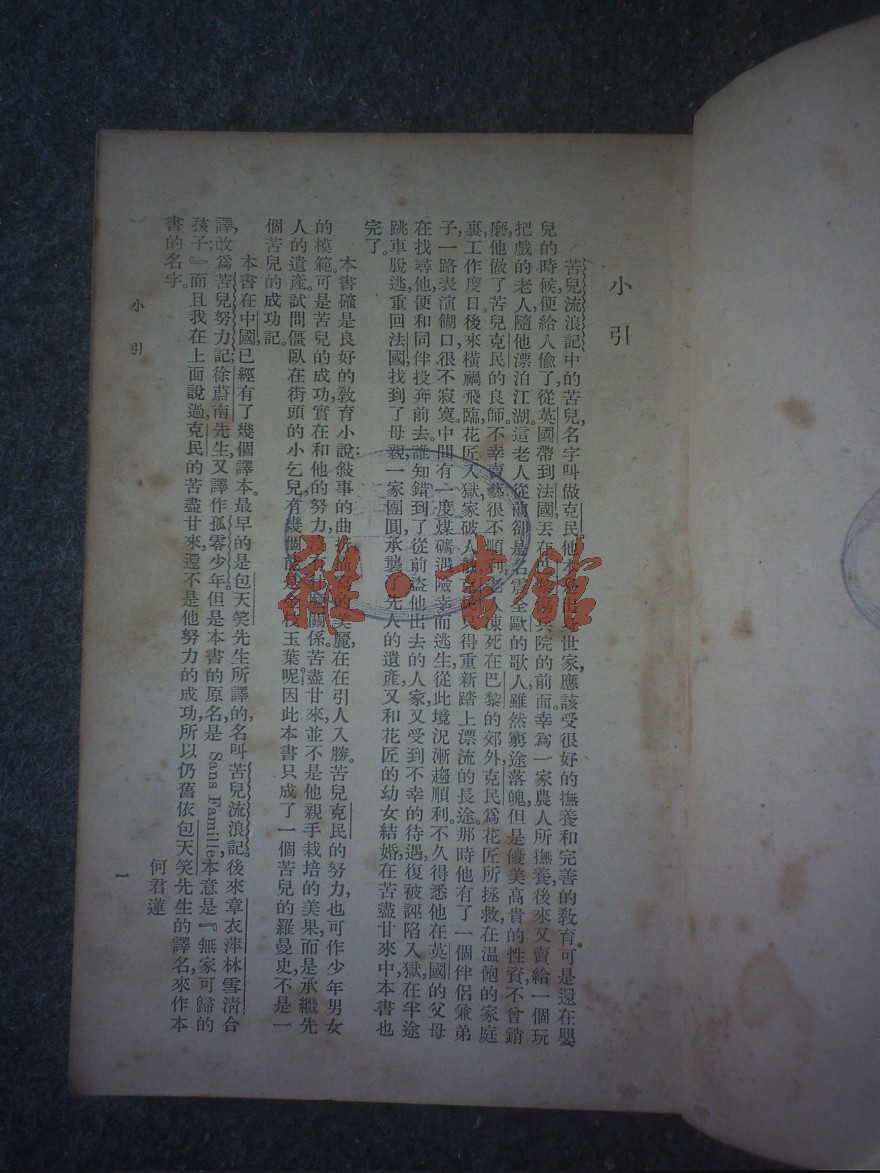 小引
苦兒流浪記中的苦兒,名字叫做克民。他本是出身世家,應該受很好的撫養和完善的教育。可是還在嬰
兒的時候,便給人偸了,從英國帶到法國,丟在巴黎院的前面。幸爲一家農人所撫養,後來又賣給一個玩
把戲的老人,隨他漂泊江湖。這老人從前卻是名震全歐的歌人,雖然窮途落魄,但是優美高貴的性資,不曾銷
磨,他做了苦兒克民的良師。不幸賣藝很不順利,老人凍死在巴黎的郊外,克民爲花匠所拯救,在温飽的家庭
裏工作度日。後來橫禍飛臨,花匠入獄,家破人得重新踏上漂流的長途。那時他有了一個伴侶兼弟
子,一路表演餬口,很不寂寞。中間有一度煤礦遇險,幸而逃生,從此境況漸趨順利。不久得悉他在英國的父母
在找尋他,便和同伴投奔前去。誰知錯到了從前盜他出去的人家,又受到不幸的待遇,復被誣陷入獄,在半途
跳車脫逃,重回法國,找到了母親,一家團圓,承襲了先人的遺產,又和花匠的幼女結婚,在苦盡甘來中,本書也
完了。
本書確是良好的教育小說:敍事的曲折,的美麗,在在引人入勝。苦兒克民的努力,也可作少年男女
的模範。可是苦兒的成功,實在和他的努力,沒有什麽關係。苦盡甘來,並不是他親手栽培的美果,而是承繼先
人的遺產。試問僵臥在街頭的小乞兒,有幾個能是金枝玉葉呢?因此本書只成了一個苦兒的羅曼史,不是一
個苦兒的成功記。
本書在中國已經有了幾個譯本。最早的是包天笑先生所譯的,名叫苦兒流浪記。後來章衣萍林雪清合
譯,改爲苦兒努力記;徐蔚南先生又譯作孤零少年。但是本書的原名是 Sans Famille,本意是『無家可歸的
孩子』而且我在上面說過,克民的苦盡甘來,還不是他努力的成功,所以仍舊依包天笑先生的譯名,來作本
書的名字。
何君蓮
小引
一
雜·書館